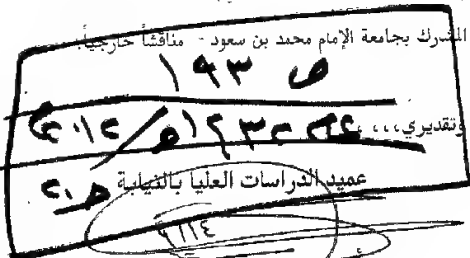 المشارك بجامعة الإمام محمد بن سعود - مناقشاً خارجياً.
ص ١٩٣
وتقديري،،،
١٤٣٣هـ / ٢٠١٢م
عميد الدراسات العليا بالنيابة